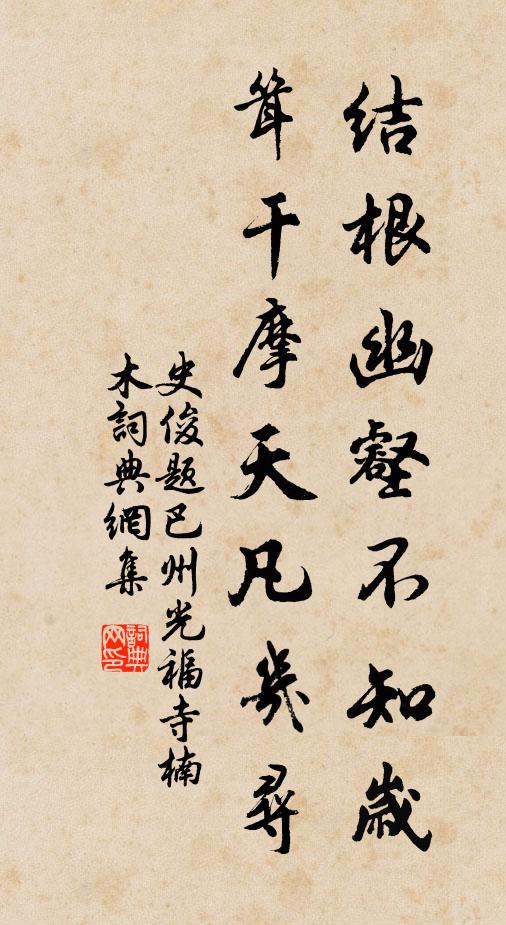 结根幽壑不知歲
耸干摩天凡幾尋
史俊题巴州光福寺楠
木詞典網集
詞典
网印